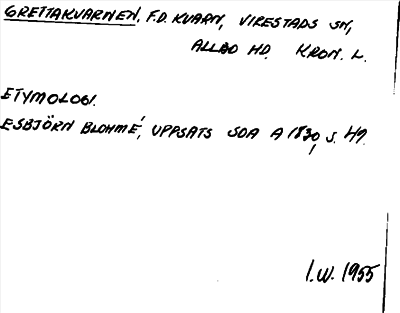 GRETTAKVARNEN, F.D. KVARN, VIRESTADS SN,
ALLBO HD. KRON. L.
ETYMOLOGI.
ESBJÖRN BLOHMÉ, UPPSATS SOA A 1830, S. 49.
I.W. 1955